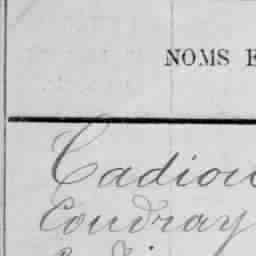 NOMS E
Cadiou
Coudray